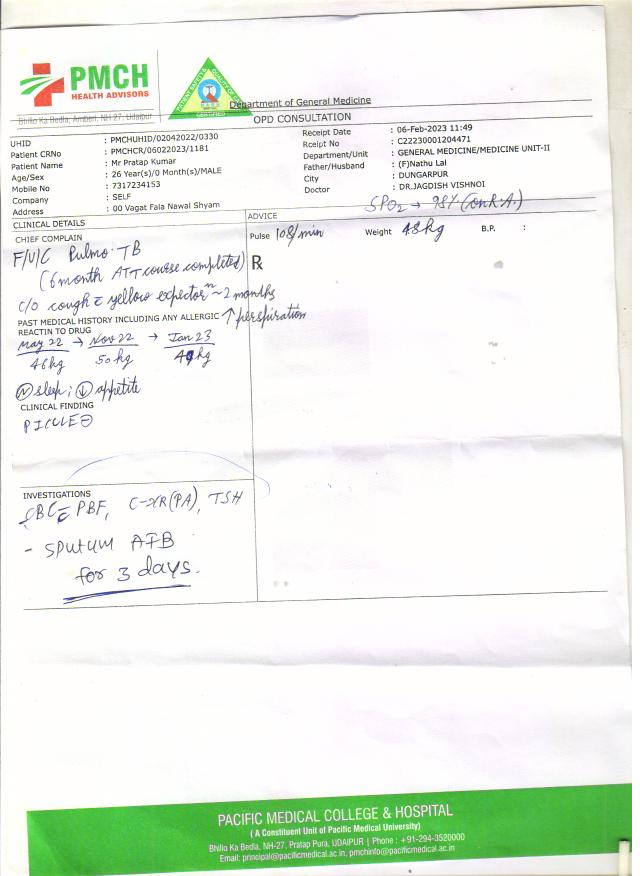 PMCH
HEALTH ADVISORS
Bhilo Ka Bedla, Amberi, NH-27, Udaipur
CERTIFIED
Department of General Medicine
OPD CONSULTATION
UHID : PMCHUHID/02042022/0330
Patient CRNo : PMCHCR/06022023/1181
Patient Name : Mr Pratap Kumar
Age/Sex : 26 Year(s)/0 Month(s)/MALE
Mobile No : 7317234153
Company : SELF
Address : 00 Vagat Fala Nawal Shyam
Receipt Date : 06-Feb-2023 11:49
Rceipt No : C22230001204471
Department/Unit : GENERAL MEDICINE/MEDICINE UNIT-II
Father/Husband : (F)Nathu Lal
City : DUNGARPUR
Doctor : DR.JAGDISH VISHNOI
SPO2 → 98% (on R.A.)
CLINICAL DETAILS
ADVICE
CHIEF COMPLAIN
Pulse 108/min Weight 48kg B.P. :
F/U/C Pulmo. TB
(6 month ATT course completed)
℞
c/o cough c̄ yellow expectorⁿ ~ 2 months
↑ perspiration
PAST MEDICAL HISTORY INCLUDING ANY ALLERGIC
REACTIN TO DRUG
May 22 → Nov 22 → Jan 23
46kg 50kg 49kg
(N) sleep; (↓) appetite
CLINICAL FINDING
PICCLE⊖
INVESTIGATIONS
CBC c̄ PBF, C-XR(PA), TSH
- Sputum AFB
for 3 days.
PACIFIC MEDICAL COLLEGE & HOSPITAL
( A Constituent Unit of Pacific Medical University)
Bhillo Ka Bedla, NH-27, Pratap Pura, UDAIPUR | Phone : +91-294-3520000
Email: principal@pacificmedical.ac.in, pmchinfo@pacificmedical.ac.in